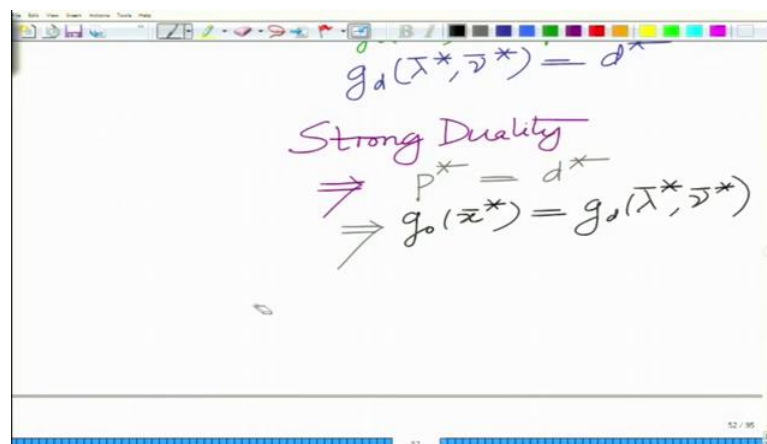 File Edit View Insert Actions Tools Help
g_d(λ̄*, ν̄*) = d*
Strong Duality
⇒ P* = d*
⇒ g₀(x̄*) = g_d(λ̄*, ν̄*)
52 / 95